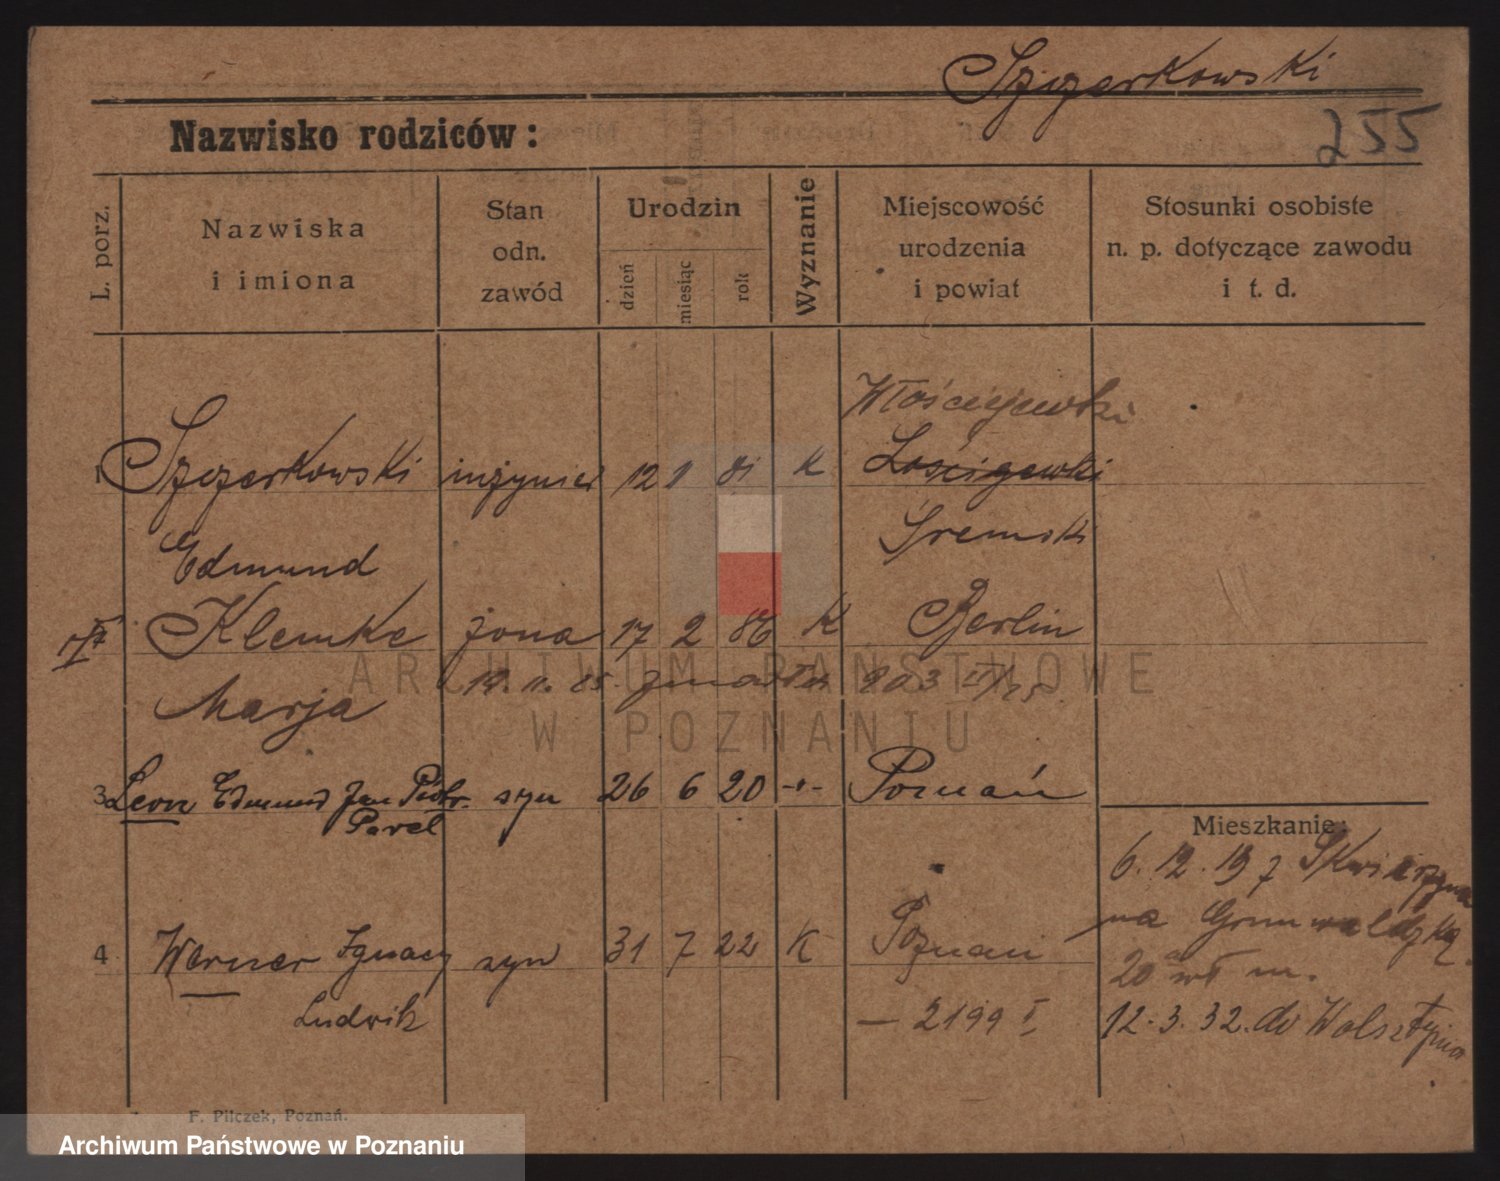 Szczerkowski
255
Nazwisko rodziców:
L. porz.
Nazwiska
i imiona
Stan
odn.
zawód
Urodzin
dzień
miesiąc
rok
Wyznanie
Miejscowość
urodzenia
i powiat
Stosunki osobiste
n. p. dotyczące zawodu
i t. d.
Włościejewki
1 Szczerkowski inżynier 12 1 81 K Lościgewki
Edmund Śremski
Klemke żona 17 2 86 K Berlin
Marja 19. 11. 25. zmarła 803 VI/25
3 Leon Edmund Jan Piotr syn 26 6 20 -"- Poznań
Pavel
Mieszkanie:
6. 12. 19 z Skwierzyna
na Grunwaldzką
20 wł m.
4 Werner Ignacy syn 31 7 22 K Poznań
Ludwik — 2199 I,
12. 3. 32. do Wolsztyna
F. Pilczek, Poznań.
ARCHIWUM PAŃSTWOWE
W POZNANIU
Archiwum Państwowe w Poznaniu